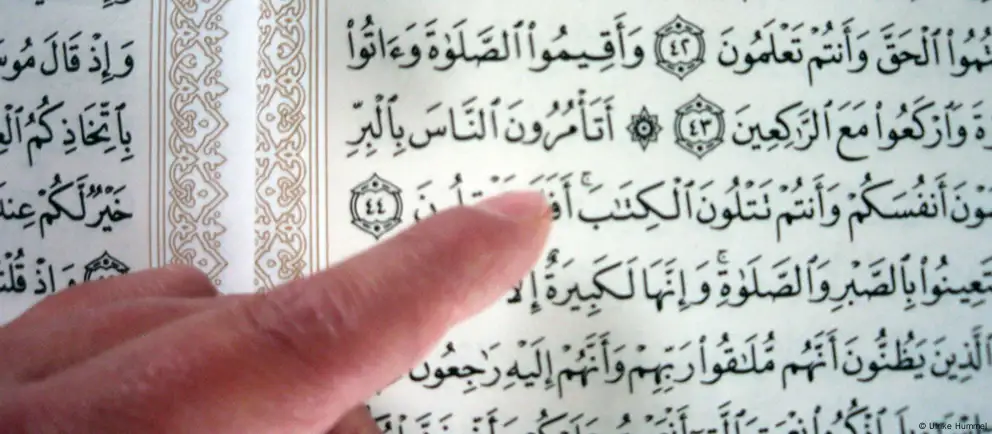 ٱلْحَقَّ وَأَنتُمْ تَعْلَمُونَ ٤٢ وَأَقِيمُوا۟ ٱلصَّلَوٰةَ وَءَاتُوا۟
وَٱرْكَعُوا۟ مَعَ ٱلرَّٰكِعِينَ ٤٣ ۞ أَتَأْمُرُونَ ٱلنَّاسَ بِٱلْبِرِّ
أَنفُسَكُمْ وَأَنتُمْ تَتْلُونَ ٱلْكِتَٰبَ ۚ ٤٤
بِٱلصَّبْرِ وَٱلصَّلَوٰةِ ۚ وَإِنَّهَا لَكَبِيرَةٌ
ٱلَّذِينَ يَظُنُّونَ أَنَّهُم مُّلَٰقُوا۟ رَبِّهِمْ وَأَنَّهُمْ إِلَيْهِ رَٰجِعُونَ
وَإِذْ قَالَ
بِٱتِّخَاذِكُمُ
خَيْرٌ لَّكُمْ
وَإِذْ
© Ulrike Hummel